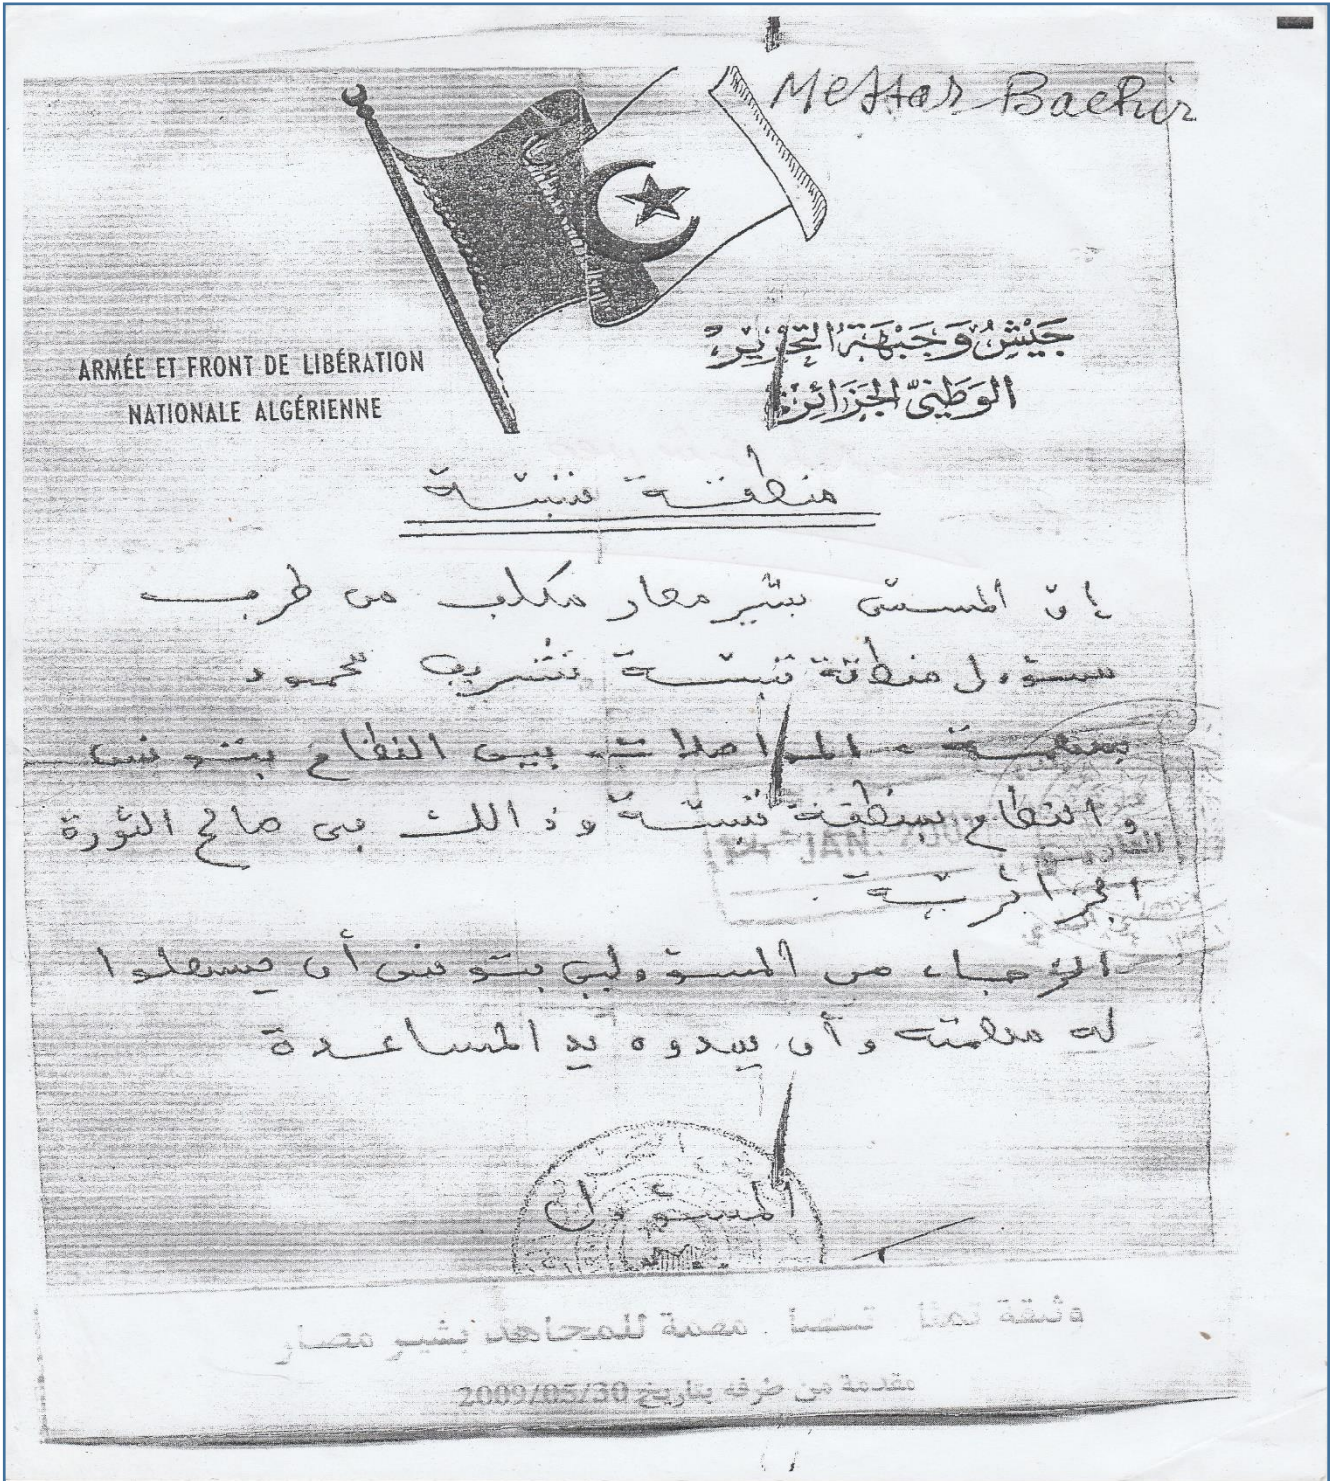 Mettar Bachir
ARMÉE ET FRONT DE LIBÉRATION
NATIONALE ALGÉRIENNE
جَيْشُ وَجَبْهَةُ التحْرِيْرِ
الوَطَنِىّ الجَزَائِرِىْ
منطقة تبسة
إن المسمى بشير معار مكلف من طرف
مسؤول منطقة تبسة شريف محمود
بمهمة المواصلات بين النظام بتونس
والنظام بمنطقة تبسة وذالك في صالح الثورة
الجزائرية
24 JAN.
الرجاء من المسؤولين بتونس أن يسهلوا
له مهمته وأن يمدوه يد المساعدة
المسؤول
وثيقة تمثل مهمة للمجاهد بشير معار
مقدمة من طرفه بتاريخ 2009/05/30